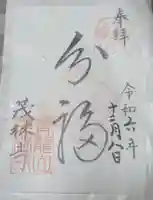 奉拝
令和六年
十二月八日
分福
茂林寺